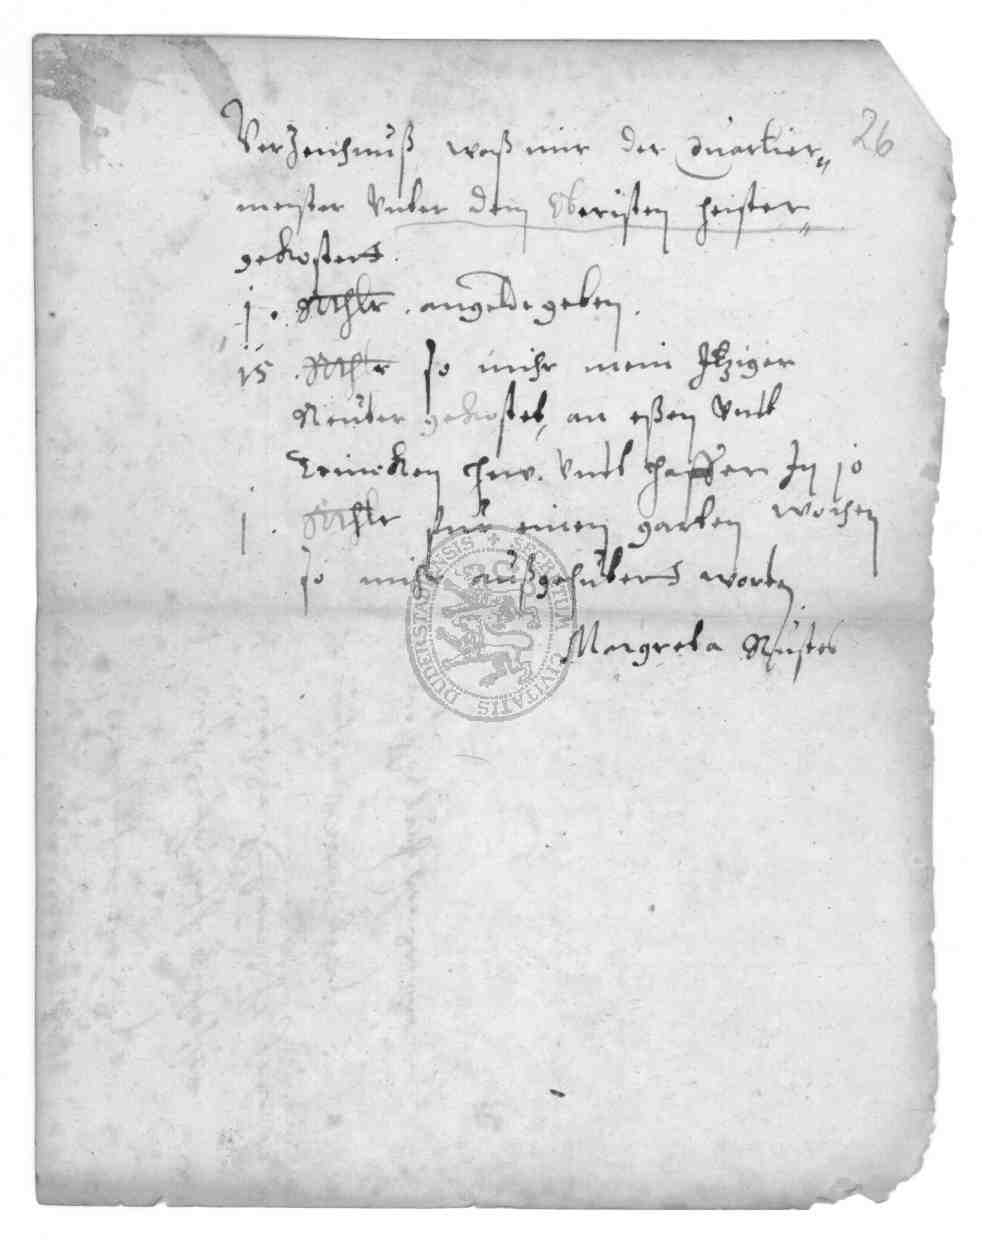 26
Verzeichnuß waß mir der Quartier„
meister Unter dem Obersten heister„
gekostett.
1. Rthlr. angelde geben.
15 Rthlr so mihr mein Itziger
Reuter gekostet, an eßen Undt
Trincken hew. Undt haffer In 10
1. Rthlr für einen garten wochen
so mihr außgefutert worden
Margreta
SECRETUM CIVITATIS DUDERSTADENSIS